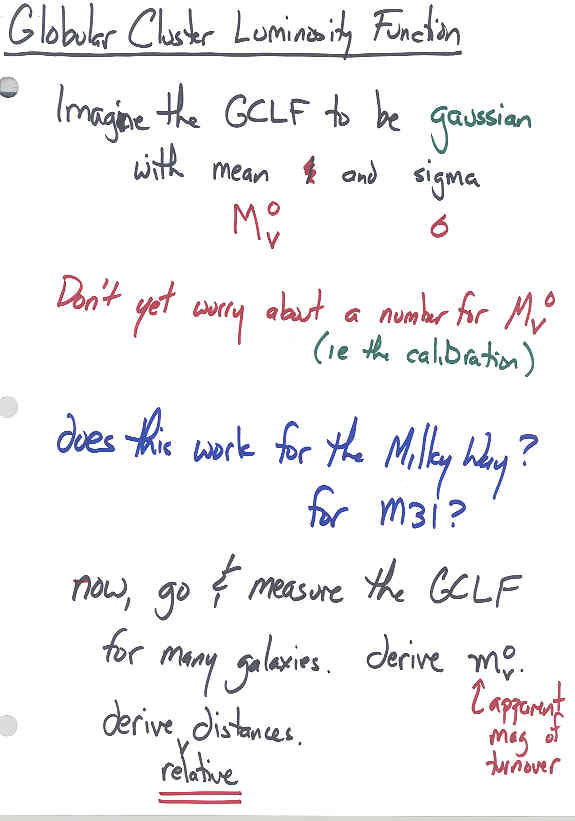 Globular Cluster Luminosity Function
Imagine the GCLF to be gaussian
with mean and sigma
M_V^o σ
Don't yet worry about a number for M_V^o
(ie the calibration)
does this work for the Milky Way?
for M31?
now, go & measure the GCLF
for many galaxies. derive m_v^o.
↑ apparent
mag of
turnover
derive relative distances.